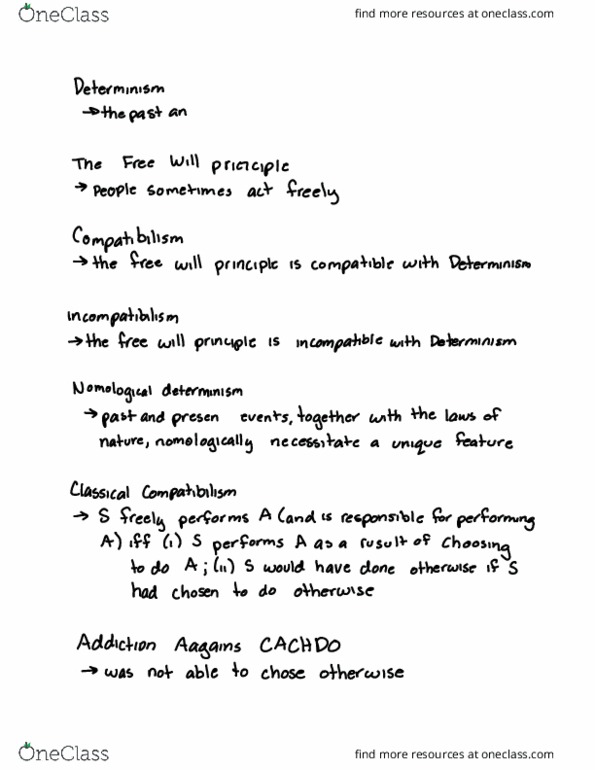 OneClass
find more resources at oneclass.com
Determinism
→ the past an
The Free Will priciciple
→ people sometimes act freely
Compatibilism
→ the free will principle is compatible with Determinism
Incompatibilism
→ the free will principle is incompatible with Determinism
Nomological determinism
→ past and presen events, together with the laws of
nature, nomologically necessitate a unique feature
Classical Compatibilism
→ S freely performs A (and is responsible for performing
A) iff (i) S performs A as a rusult of choosing
to do A; (ii) S would have done otherwise if S
had chosen to do otherwise
Addiction Aagains CACHDO
→ was not able to chose otherwise
OneClass
find more resources at oneclass.com